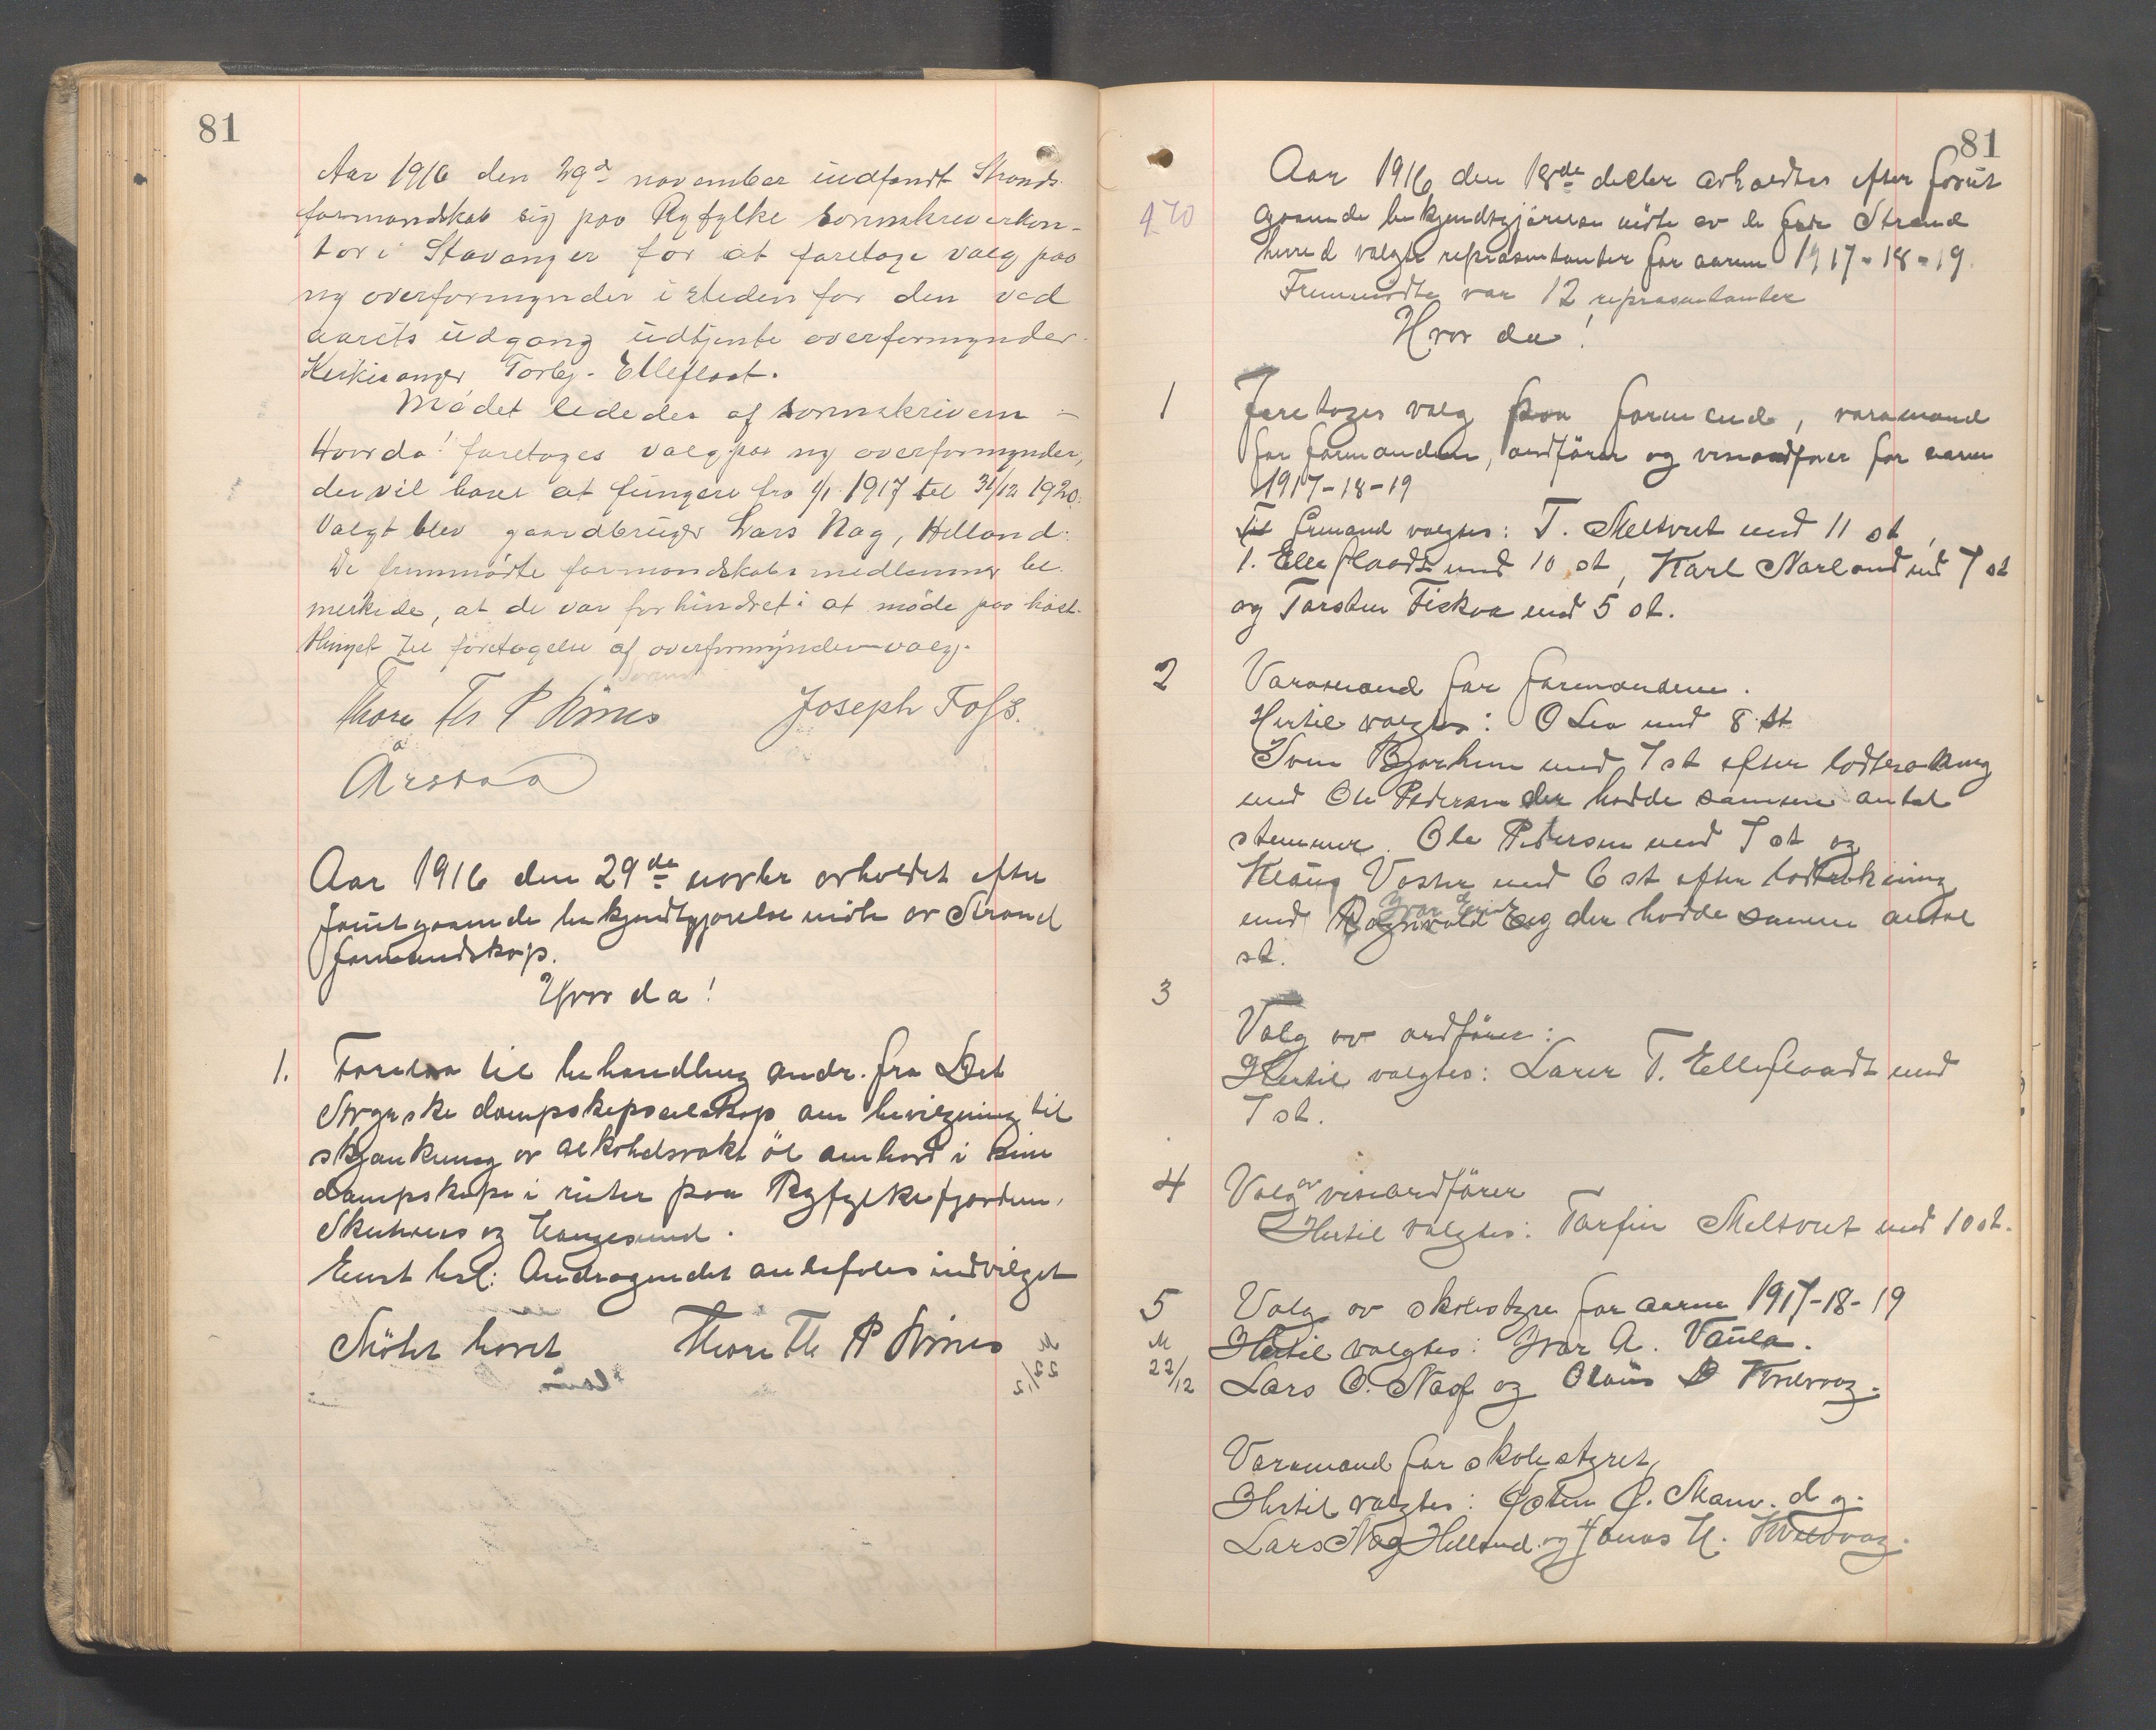 81
Aar 1916 den 29de november indfandt Strands
formandskab sig paa Ryfylke sorenskriverkon-
tor i Stavanger for at foretage valg paa
ny overformynder i steden for den ved
aarets udgang udtjente overformynder
Torbj. Elleflaat.
Mødet lededes af sorenskriveren
Hvorda! foretages valg paa ny overformynder,
der vil have at fungere fra 1/1 1917 til 31/12 1920.
Valgt blev gaardbruger Lars Nag, Helland.
De fremmødte formandskabsmedlemmer be-
merkede, at de var forhindret i at møde paa høst-
thinget til foretagelse af overformyndervalg.
Thore Th P Joseph Foss.
Årstaa
Aar 1916 den 29de novbr avholdt efter
forutgaaende bekjendtgjørelse møte av Strand
formandskap.
Hvor da!
1. Forelaa til behandling andr. fra Det
Stvgrske dampskipselskap om bevilgning til
skjænkning av alkoholsvakt öl ombord i sine
dampskipe i ruter paa Ryfylkefjorden,
og Haugesund.
Enst besl: Andragendet anbefales indvilget
Mötet hævet Thore Th P
81
Aar 1916 den 18de decbr avholdtes efter forut
470 gaaende bekjendtgjörelse möte av de for Strand
herred valgte repræsentanter for aarene 1917-18-19.
Fremmödte var 12 repræsentanter
Hvor da!
1 Foretoges valg paa formend, varamænd
for formændene, ordförer og viseordförer for aarene
1917-18-19
Til formænd valgtes: T. Meltveit med 11 st,
T. Elleflaadt med 10 st, Karl Norland med 7 st
og Torsten Fiskaa med 5 st.
2 Varamænd for formændene.
Hertil valgtes: O Lea med 8 st
Sven Bjørheim med 7 st efter lodtrækning
med Ole Pedersen der hadde samme antal
stemmer. Ole Pedersen med 7 st og
Klaus Voster med 6 st efter lodtrækning
med Ragnvald Eeg der hadde samme antal
st.
3 Valg av ordförer:
Hertil valgtes: Larer T. Elleflaadt med
7 st.
4 Valg av viseordförer
Hertil valgtes: Torfin Meltveit med 10 st.
5 Valg av skolestyre for aarene 1917-18-19
M Hertil valgtes: Ivar A. Vaula.
22/12 Lars O. Nag og Olaus
Varamænd for skolestyret,
Hertil valgtes: d y.
Lars Nag Helland og Jonas H.